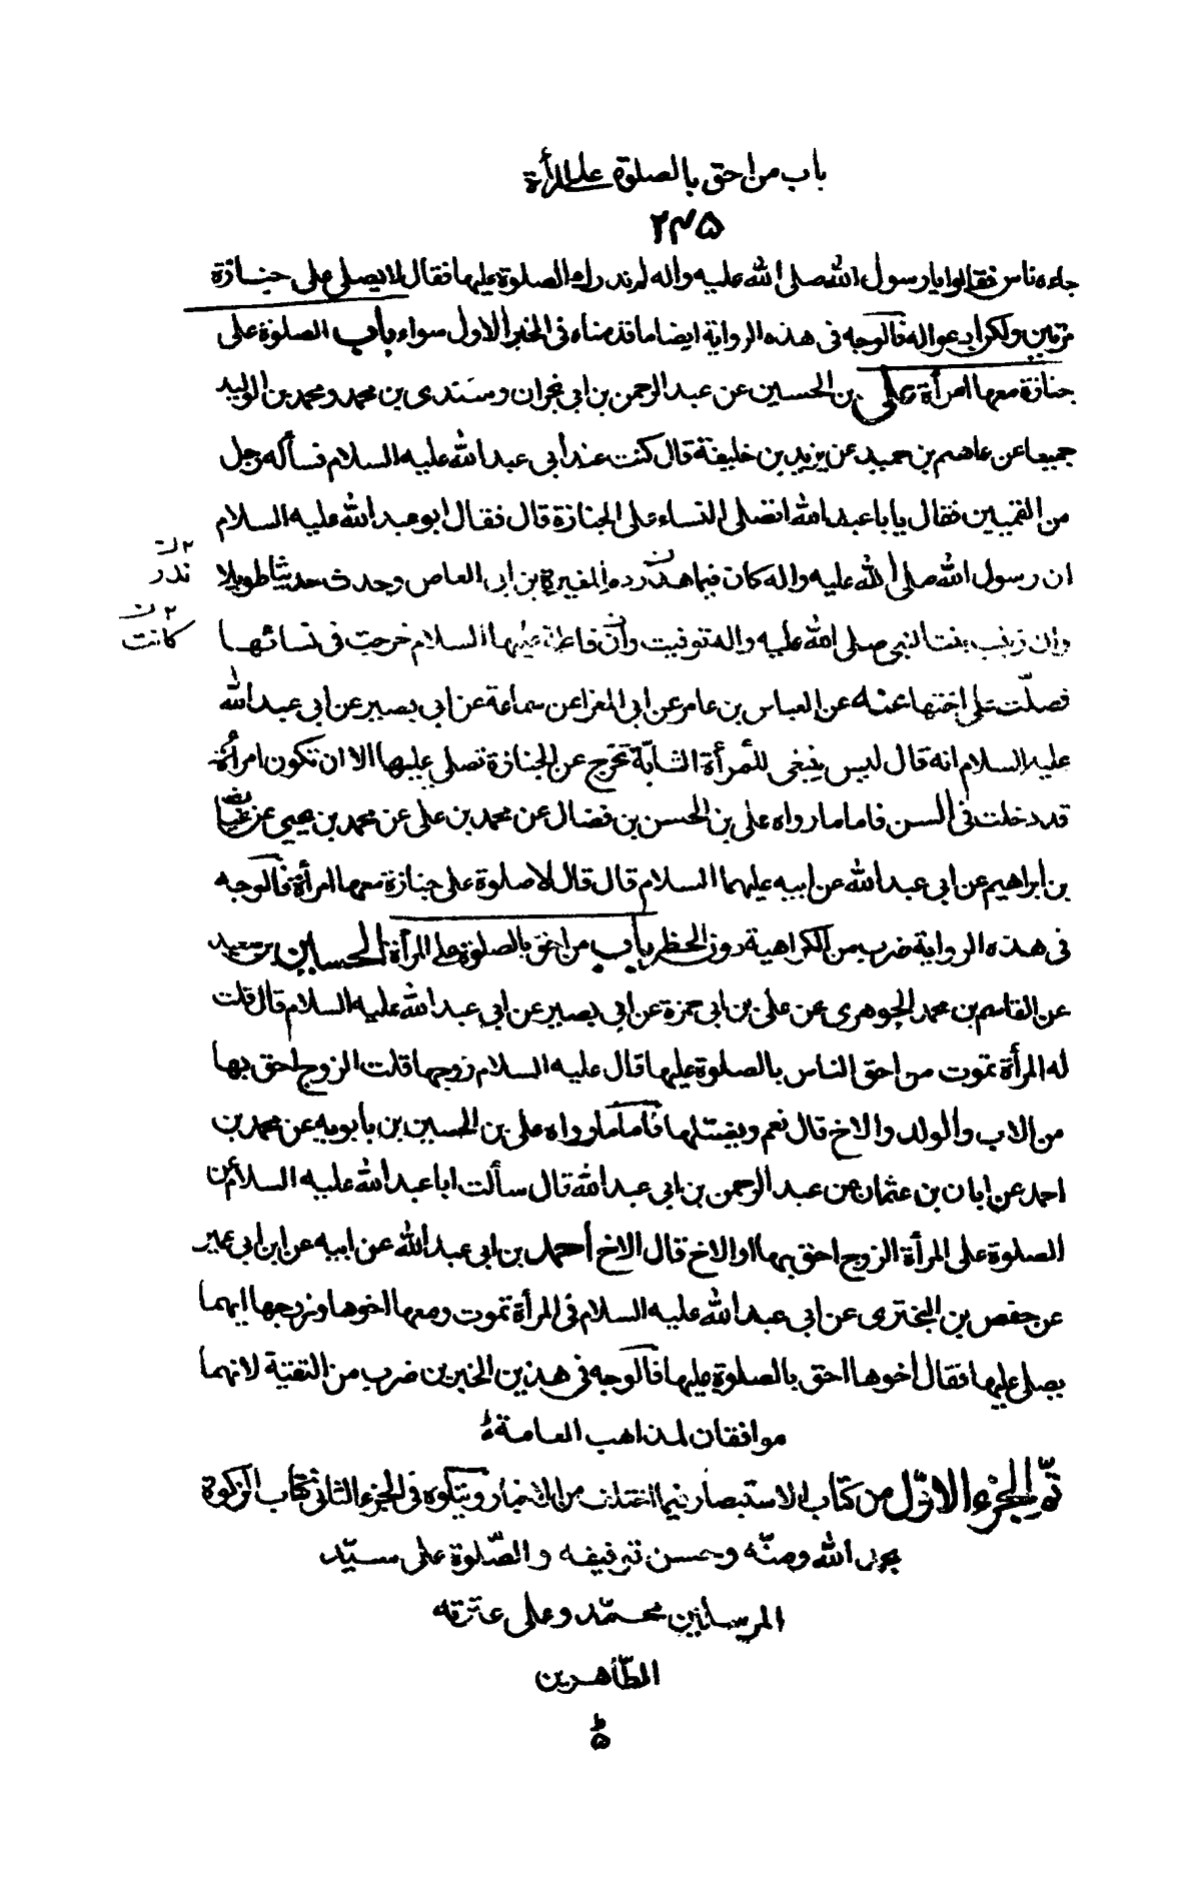 باب من احق بالصلوة على المرأة
٢٤٥
جاءه ناس فقالوا يا رسول الله صلى الله عليه واله لم ندرك الصلوة عليها فقال لا يصلى على جنازة
مرتين ولكن ادعوا له فالوجه فى هذه الرواية ايضا ما قدمناه فى الخبر الاول سواء باب الصلوة على
جنازة معها امرأة على بن الحسين عن عبد الرحمن بن ابى نجران وسندى بن محمد ومحمد بن الوليد
جميعا عن عاصم بن حميد عن يزيد بن خليفة قال كنت عند أبى عبد الله عليه السلام فسأله رجل
من القميين فقال يا با عبد الله اتصلى النساء على الجنازة قال فقال ابو عبد الله عليه السلام
ان رسول الله صلى الله عليه واله كان فيما هذر ده المغيرة بن ابى العاص وحدث حديثا طويلا
ندر
وان زينب بنت النبى صلى الله عليه واله توفيت وان فاطمة عليها السلام خرجت فى نسائها
كانت
فصلّت على اختها عنه عن العباس بن عامر عن ابى المغرا عن سماعة عن ابى بصير عن ابى عبد الله
عليه السلام انه قال ليس ينبغى للمرأة الشابّة تخرج عن الجنازة تصلى عليها الا ان تكون امرأة
قد دخلت فى السن فاما ما رواه على بن الحسن بن فضال عن محمد بن على عن محمد بن يحيى عن غياث
بن ابراهيم عن ابى عبد الله عن ابيه عليهما السلام قال قال لا صلوة على جنازة معها امرأة فالوجه
فى هذه الرواية ضرب من الكراهية دون الحظر باب من احق بالصلوة على المرأة الحسين بن سعيد
عن القاسم بن محمد الجوهرى عن على بن ابى حمزة عن ابى بصير عن ابى عبد الله عليه السلام قال قلت
له المرأة تموت من احق الناس بالصلوة عليها قال عليه السلام زوجها قلت الزوج احق بها
من الاب والولد والاخ قال نعم ويغسلها فاما ما رواه على بن الحسين بن بابويه عن محمد بن
احمد عن ابان بن عثمان عن عبد الرحمن بن ابى عبد الله قال سألت ابا عبد الله عليه السلام عن
الصلوة على المرأة الزوج احق بها او الاخ قال الاخ أحمد بن ابى عبد الله عن ابيه عن ابن ابى عمير
عن حفص بن البخترى عن ابى عبد الله عليه السلام فى المرأة تموت ومعها اخوها وزوجها ايهما
يصلى عليها فقال أخوها احق بالصلوة عليها فالوجه فى هذين الخبرين ضرب من التقيّة لانهما
موافقان لمذاهب العامة
تمّ الجزء الاوّل من كتاب الاستبصار فيما اختلف من الاخبار ويتلوه فى الجزء الثانى كتاب الزكوة
بحمد الله ومنّه وحسن توفيقه والصّلوة على سيّد
المرسلين محمّد وعلى عترته
الطّاهرين